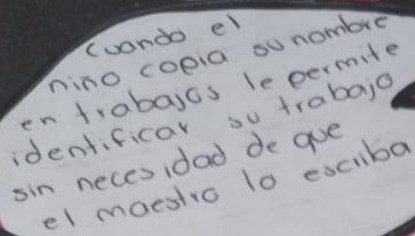 Cuando el
niño copia su nombre
en trabajos le permite
identificar su trabajo
sin necesidad de que
el maestro lo escriba